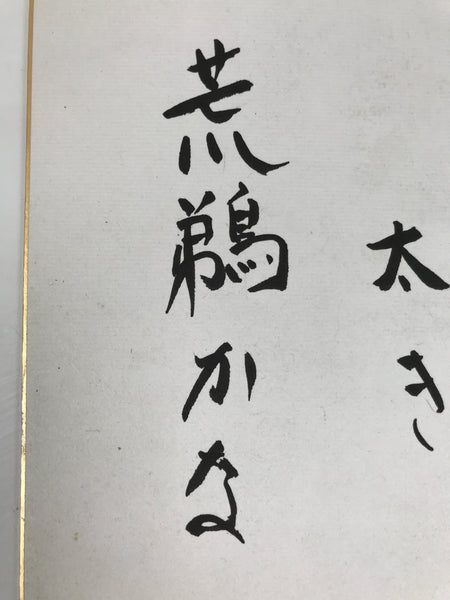 太き
荒鵜かな